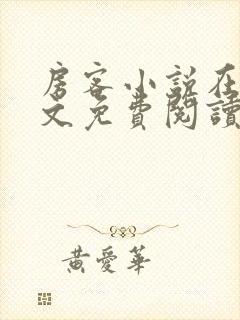 房客小說在
文免費閱讀
黃愛華